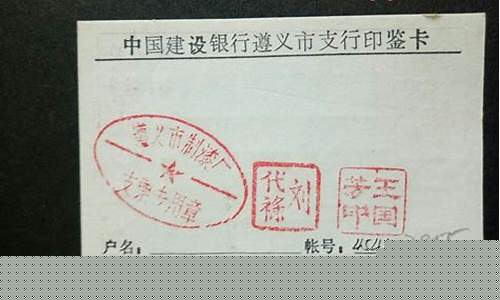 中国建设银行遵义市支行印鉴卡
遵义市制漆厂
支票专用章
刘代禄
王国芳印
户名：
帐号：